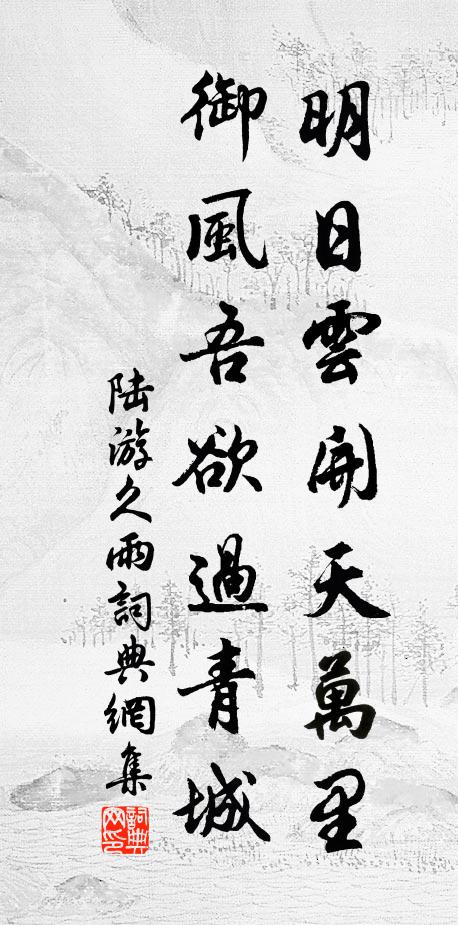 明日雲開天萬里
御風吾欲過青城
陆游久雨詞典網集
詞典网印